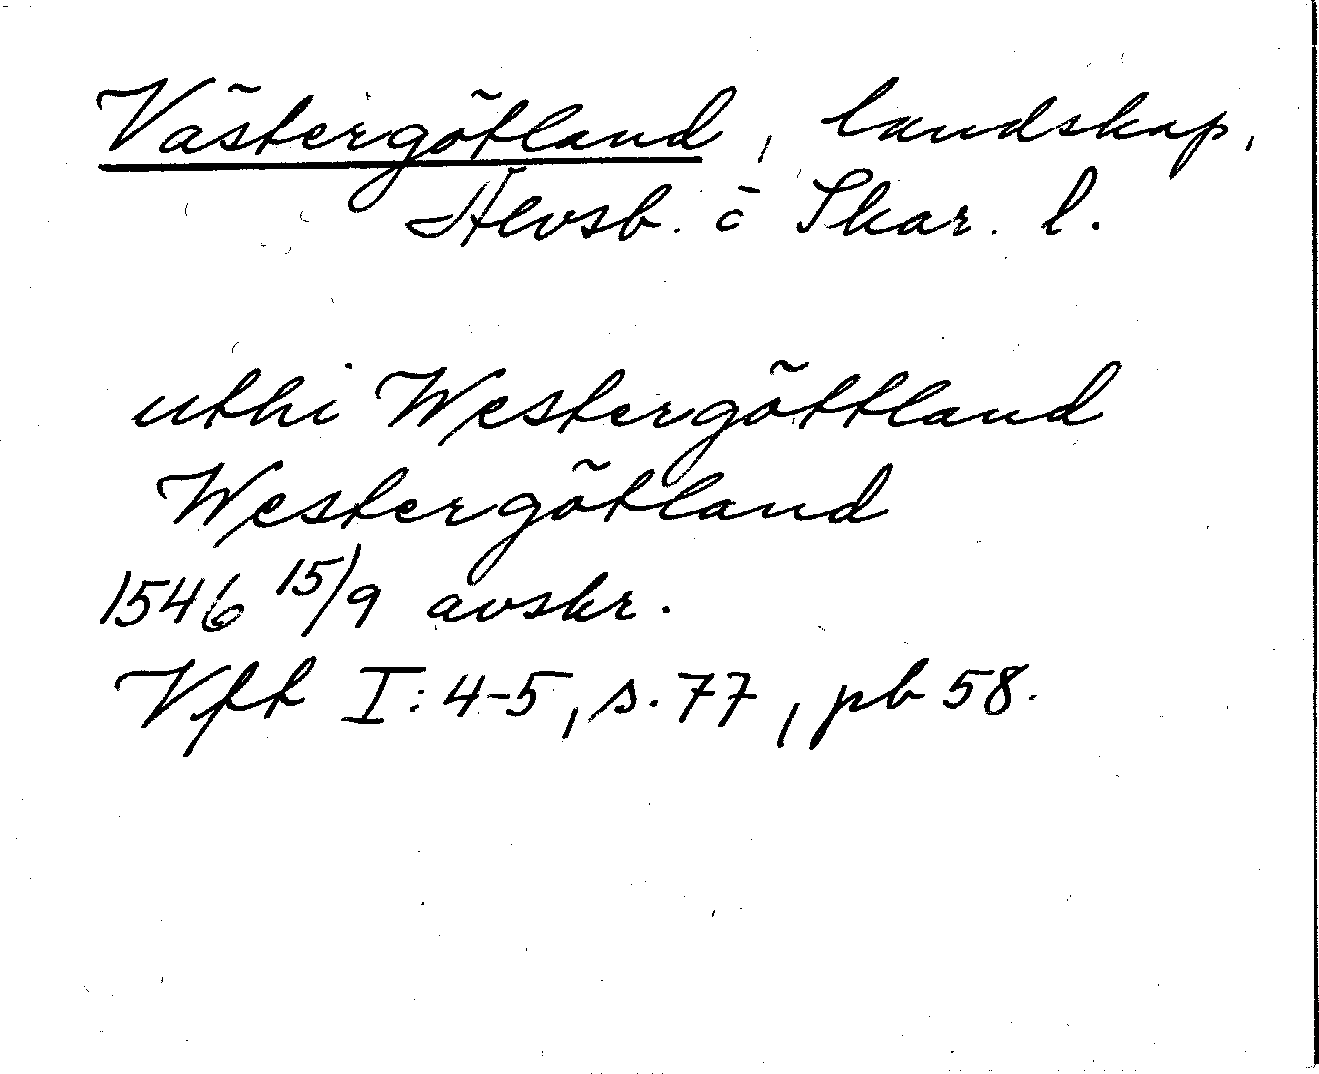 Västergötland, landskap,
Älvsb. o Skar. l.
uthi Westergöttland
Westergötland
1546 15/9 avskr.
Vft I: 4-5, s. 77, pb 58.